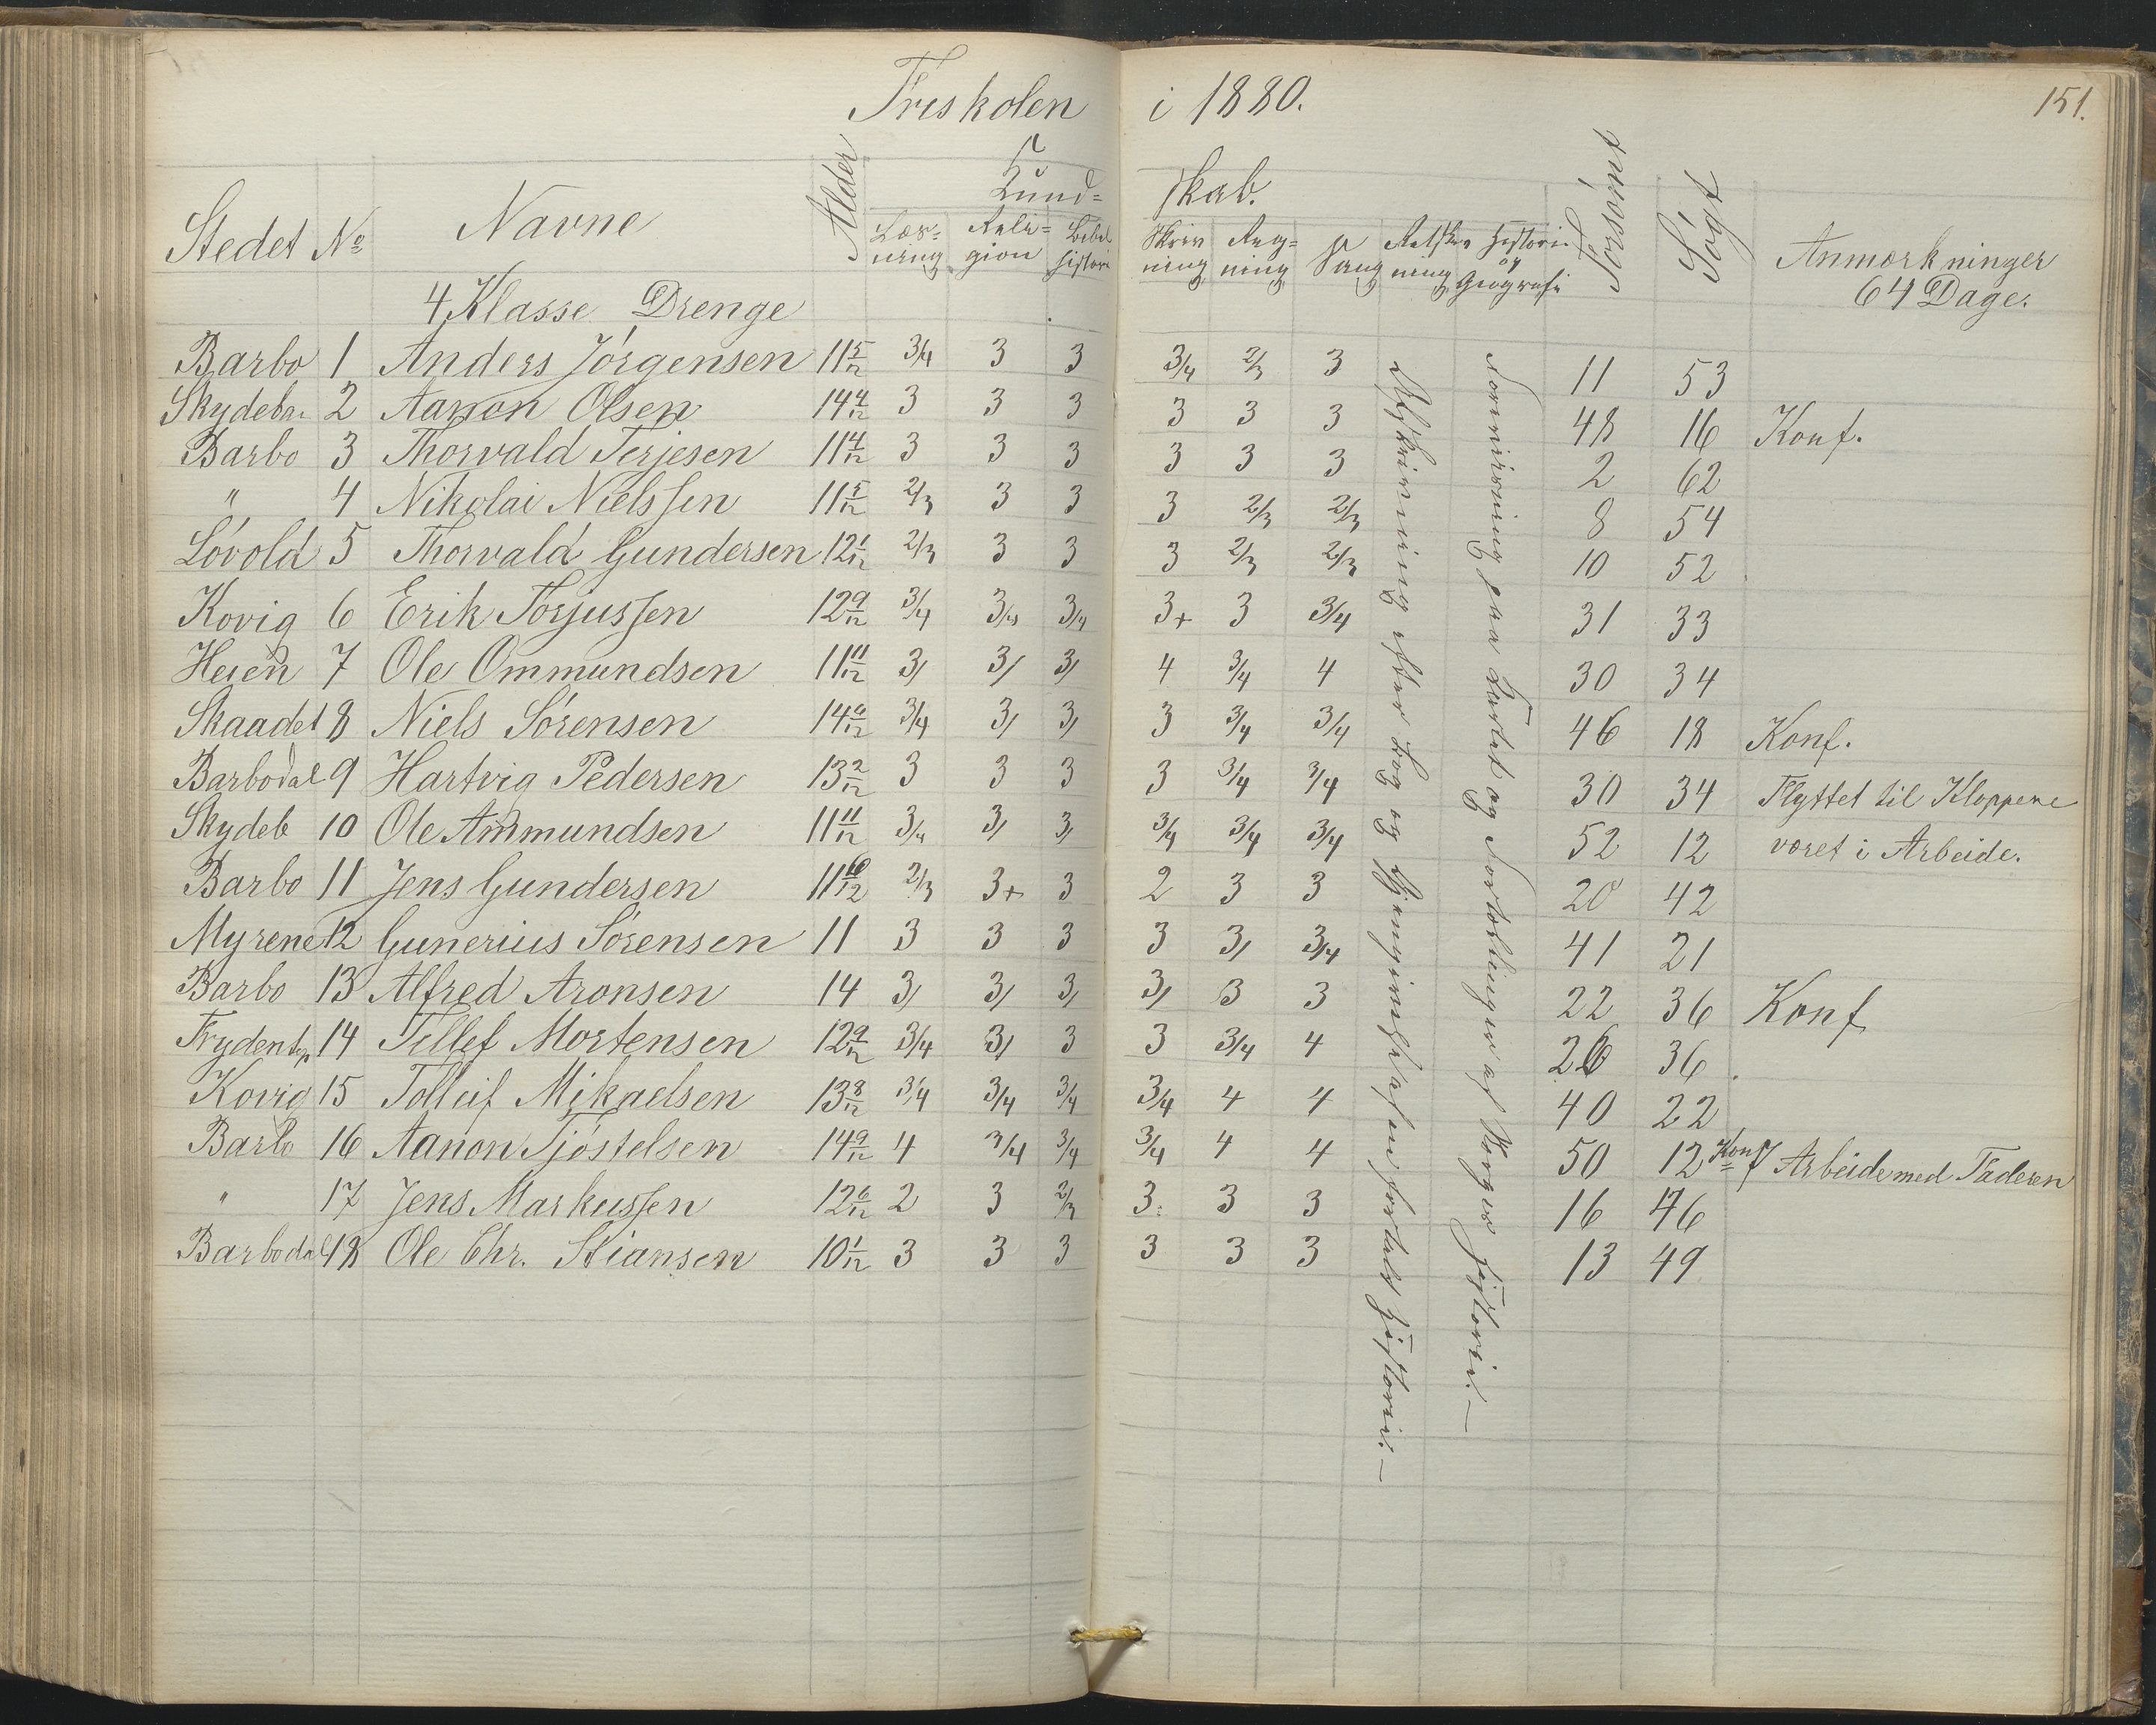 Friskolen i 1880. 151.
Stedet No Navne Alder Kund= skab. Forsømt Søgt Anmærkninger
Læs= Reli= Bibel Skriv Reg= Sang Retskr Historie
ning gion historie ning ning ning og Geografi
4 Klasse Drenge 64 Dage.
Barbo 1 Anders Jörgensen 11 5/12 3/4 3 3 3/4 2/3 3 11 53
Skydeba 2 Aanon Olsen 14 4/12 3 3 3 3 3 3 48 16 Konf.
Barbo 3 Thorvald Terjesen 11 4/12 3 3 3 3 3 3 2 62
" 4 Nikolai Nielssen 11 5/12 2/3 3 3 3 2/3 2/3 8 54
Lövold 5 Thorvald Gundersen 12 1/12 2/3 3 3 3 2/3 2/3 10 52
Kovig 6 Erik Torjussen 12 9/12 3/4 3/4 3/4 3+ 3 3/4 31 33
Heien 7 Ole Ommundsen 11 11/12 3/ 3/ 3/ 4 3/4 4 30 34
Skaadet 8 Niels Sörensen 14 6/12 3/4 3/ 3/ 3 3/4 3/4 46 18 Konf.
Barbodal 9 Hartvig Pedersen 13 2/12 3 3 3 3 3/4 3/4 30 34 Flyttet til Kloppene
Skydeb 10 Ole Ammundsen 11 11/12 3/4 3/ 3/ 3/4 3/4 3/4 52 12 været i Arbeide.
Barbo 11 Jens Gundersen 11 10/12 2/3 3+ 3 2 3 3 20 42
Myrene 12 Gunerius Sörensen 11 3 3 3 3 3/ 3/4 41 21
Barbo 13 Alfred Aronsen 14 3/ 3/ 3/ 3/ 3 3 22 36 Konf
14 Tellef Mortensen 12 9/12 3/4 3/ 3 3 3/4 4 26 36
Kovig 15 Tolleif Mikaelsen 13 8/12 3/4 3/4 3/4 3/4 4 4 40 22
Barbo 16 Aanon Tjöstelsen 14 9/12 4 3/4 3/4 3/4 4 4 50 12 Konf Arbeide med Faderen
" 17 Jens Markussen 12 6/12 2 3 2/3 3 3 3 16 46
Barbodal 18 Ole Chr. Stiansen 10 1/12 3 3 3 3 3 3 13 49
Afskrivning efter Bog og Gjengivelse af en fortalt Historie.—
Forevisning paa Kartet og Fortællinger af Norges Historie.—